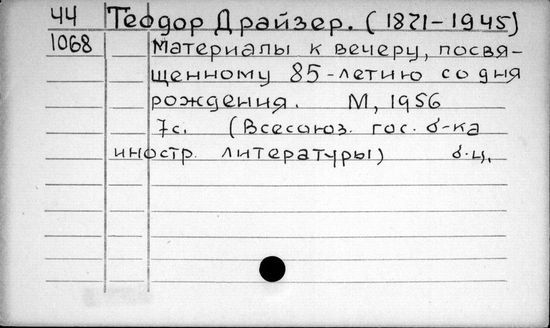 44 Теодор Драйзер. (1871-1945)
1068 Материалы к вечеру, посвя-
щенному 85-летию со дня
рождения. М, 1956
7с. (Всесоюз. гос. б-ка
иностр. литературы) б.ц.